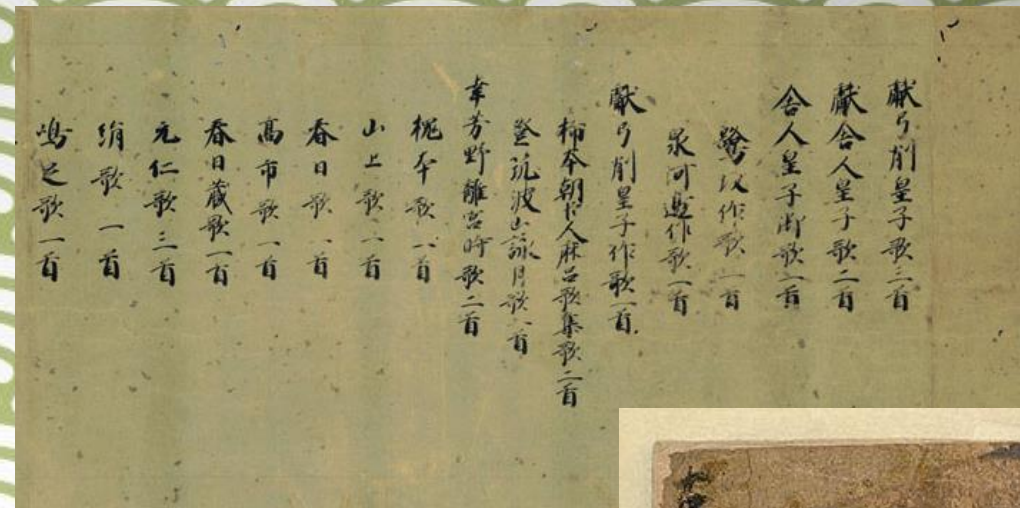 献弓削皇子歌三首
献舎人皇子歌二首
舎人皇子御歌一首
鷺坂作歌一首
泉河邊作歌一首
献弓削皇子作歌一首
柿本朝臣人麻呂歌集歌二首
登筑波山詠月歌一首
幸芳野離宮時歌二首
槐本歌一首
山上歌一首
春日歌一首
高市歌一首
春日蔵歌一首
元仁歌三首
絹歌一首
嶋足歌一首